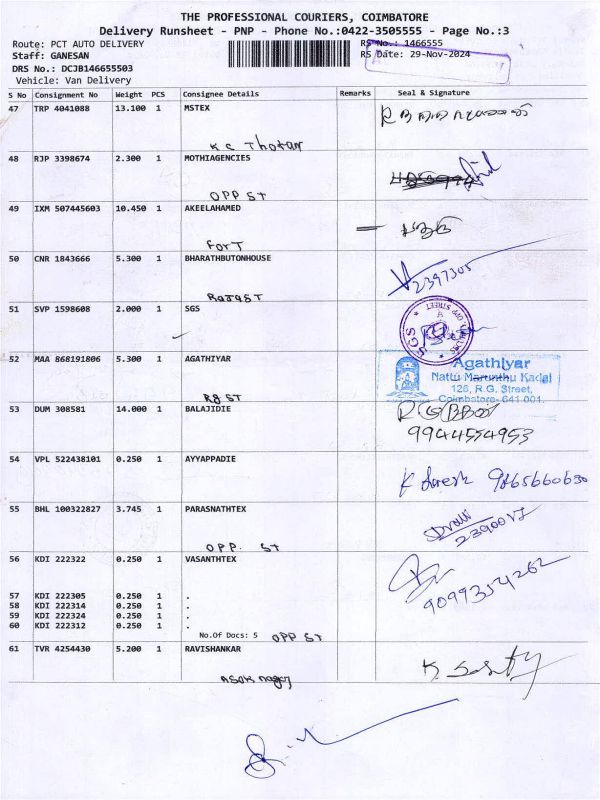 THE PROFESSIONAL COURIERS, COIMBATORE
Delivery Runsheet - PNP - Phone No.:0422-3505555 - Page No.:3
Route: PCT AUTO DELIVERY RS No.: 1466555
Staff: GANESAN RS Date: 29-Nov-2024
DRS No.: DCJB146655503
Vehicle: Van Delivery
S No Consignment No Weight PCS Consignee Details Remarks Seal & Signature
47 TRP 4041088 13.100 1 MSTEX
KC Thotam
48 RJP 3398674 2.300 1 MOTHIAGENCIES
OPP ST
49 IXM 507445603 10.450 1 AKEELAHAMED
Fort
50 CNR 1843666 5.300 1 BHARATHBUTONHOUSE
2397305
Raja ST
51 SVP 1598608 2.000 1 SGS
SGS
52 MAA 868191806 5.300 1 AGATHIYAR
Agathiyar
Nattu Marunthu Kadai
126, R.G. Street,
Coimbatore- 641 001.
RG ST
53 DUM 308581 14.000 1 BALAJIDIE
9944554953
54 VPL 522438101 0.250 1 AYYAPPADIE
K Suresh 9865660630
55 BHL 100322827 3.745 1 PARASNATHTEX
OPP. ST
56 KDI 222322 0.250 1 VASANTHTEX
9099354262
57 KDI 222305 0.250 1 .
58 KDI 222314 0.250 1 .
59 KDI 222324 0.250 1 .
60 KDI 222312 0.250 1 .
No.Of Docs: 5 OPP ST
61 TVR 4254430 5.200 1 RAVISHANKAR
ASOK nagar